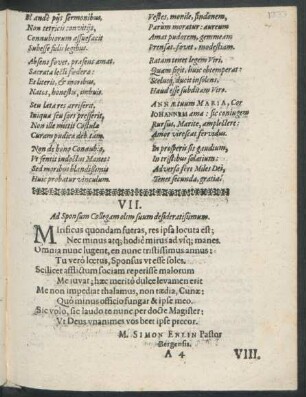 Blandis piis sermonibus,
Non tetricis convitiis,
Connubiorum assuefacit
Subesse suos legibus.
Absens fovet, præsens amat.
Sacrata lecti fœdera:
Et literis, & moribus,
Natos, honestis, imbuit.
Seu læta res arriserit,
Iniqua seu sors presserit,
Non ille mittit
Curam pudicæ
Non de bono
Vt sentis indoctos
Sed moribus blandissimis
Huic probatur vinculum.
Vestes, monile, spondenem,
Parùm moratur: aureum
Amat pudorem, gemmeam
Prensat, fovet, modestiam.
Ratam tenet legem Viri,
Quam figit, huic obtemperat:
Velamq́, ducit insolens,
Haud esse subditam Viro.
Annæ tuum Maria, Cor
Iohannem ama: sic coniugem
Rursus, Marite, amplectere:
Amor virescat fervidus.
In prosperis sis gaudium,
In tristibus solatium:
Adversa fert Miles Dei,
Tenet secunda, gratia.
VII.
Ad Sponsum Collegam olim suum desideratissimum.
Mirificus quondam fueras, res ipsa locuta est;
Nec minus atq; hodiè mirus ad usq; manes.
Omnia nunc lugent, en nunc tristissimus annus:
Tu verò lœtus, Sponsus vt esse soles.
Scilicet afflictum socium reperisse malorum
Me iuvat; hæc meritò dulce levamen erit
Me non impediat thalamus, non tædia, Cunæ:
Quò minus officio fungar & ipse meo.
Sic volo, sic laudo te nunc per docte Magister:
Vt Deus vnanimes vos beet ipse precor.
M. Simon Erlin Pastor
Bergensis.
A 4
VIII.